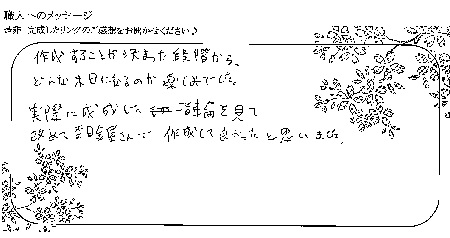 職人へのメッセージ
是非、完成したリングのご感想をお聞かせください♪
作成することが決まった段階から、
どんな木目になるのか楽しみでした。
実際に成成した 指輪を見て
改めて 杢目金屋さんに 作成して良かったと思いました。